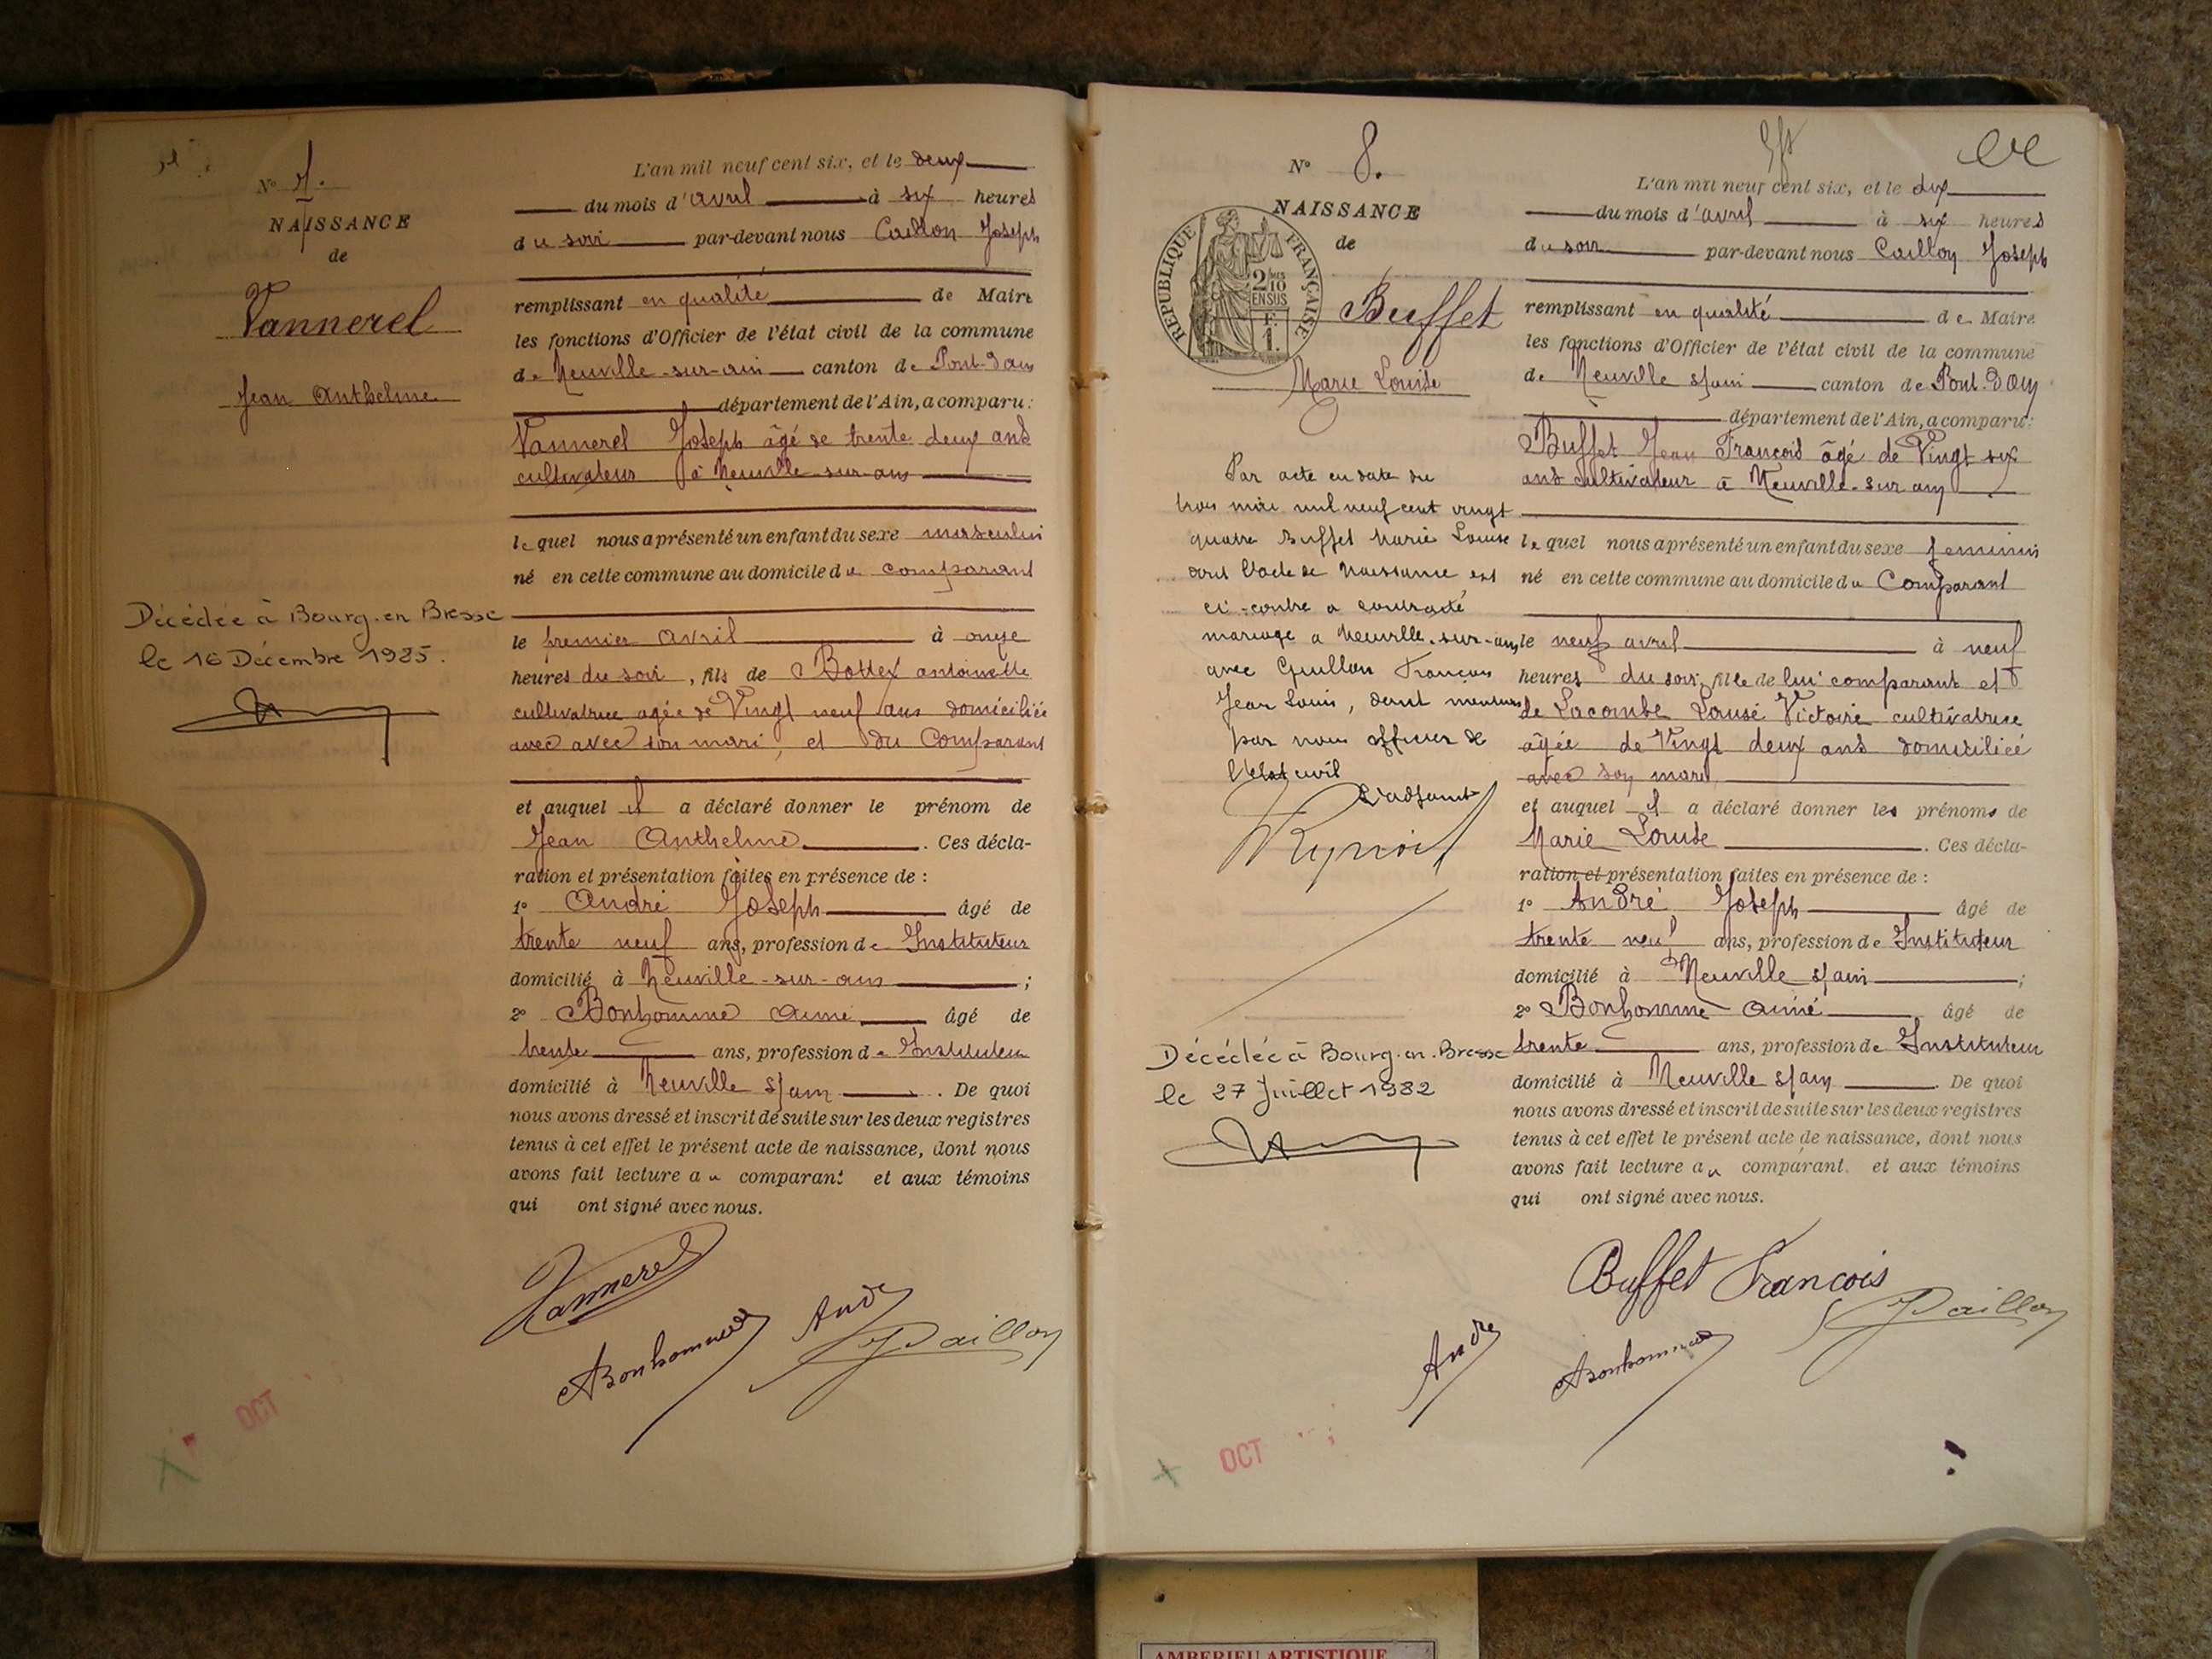 N° 7.
NAISSANCE
de
Vannerel
Jean Anthelme
Décédée à Bourg-en-Bresse
le 16 Décembre 1985.
L'an mil neuf cent six, et le deux
du mois d'avril à six heures
du soir par-devant nous Caillon Joseph
remplissant en qualité de Maire
les fonctions d'Officier de l'état civil de la commune
de Neuville-sur-ain canton de Pont-d'ain
département de l'Ain, a comparu:
Vannerel Joseph âgé de trente deux ans
cultivateur à Neuville-sur-ain
lequel nous a présenté un enfant du sexe masculin
né en cette commune au domicile du comparant
le premier avril à onze
heures du soir, fils de Bottex antoinette
cultivatrice agée de Vingt neuf ans domiciliée
avec avec son mari, et du Comparant
et auquel il a déclaré donner le prénom de
Jean Anthelme. Ces décla-
ration et présentation faites en présence de :
1° André Joseph âgé de
trente neuf ans, profession de Instituteur
domicilié à Neuville-sur-ain ;
2° Bonhomme aimé âgé de
trente ans, profession de Instituteur
domicilié à Neuville s/ain. De quoi
nous avons dressé et inscrit de suite sur les deux registres
tenus à cet effet le présent acte de naissance, dont nous
avons fait lecture au comparant et aux témoins
qui ont signé avec nous.
Vannerel
Bonhomme André
JCaillon
OCT
N° 8.
NAISSANCE
de
RÉPUBLIQUE FRANÇAISE
2/10 EN SUS
1 F.
Buffet
Marie Louise
Par acte en date du
trois mai mil neuf cent vingt
quatre Buffet Marie Louise
dont l'acte de Naissance est
ci-contre a contracté
mariage a Neuville-sur-ain
avec Guillon François
Jean Louis, dont mention
par nous officier de
l'état civil
L'adjoint
Décédée à Bourg-en-Bresse
le 27 Juillet 1982
L'an mil neuf cent six, et le dix
du mois d'avril à six heures
du soir par-devant nous Caillon Joseph
remplissant en qualité de Maire
les fonctions d'Officier de l'état civil de la commune
de Neuville s/ain canton de Pont-d'ain
département de l'Ain, a comparu:
Buffet Jean François âgé de Vingt six
ans cultivateur à Neuville-sur ain
lequel nous a présenté un enfant du sexe feminin
né en cette commune au domicile du Comparant
le neuf avril à neuf
heures du soir, fille de lui comparant et
de Lacombe Louise Victoire cultivatrice
âgée de Vingt deux ans domiciliée
avec son mari
et auquel il a déclaré donner les prénoms de
Marie Louise. Ces décla-
ration et présentation faites en présence de :
1° André Joseph âgé de
trente neuf ans, profession de Instituteur
domicilié à Neuville s/ain ;
2° Bonhomme aimé âgé de
trente ans, profession de Instituteur
domicilié à Neuville s/ain. De quoi
nous avons dressé et inscrit de suite sur les deux registres
tenus à cet effet le présent acte de naissance, dont nous
avons fait lecture au comparant et aux témoins
qui ont signé avec nous.
Buffet Francois
André Bonhomme JCaillon
OCT
AMBERIEU ARTISTIQUE